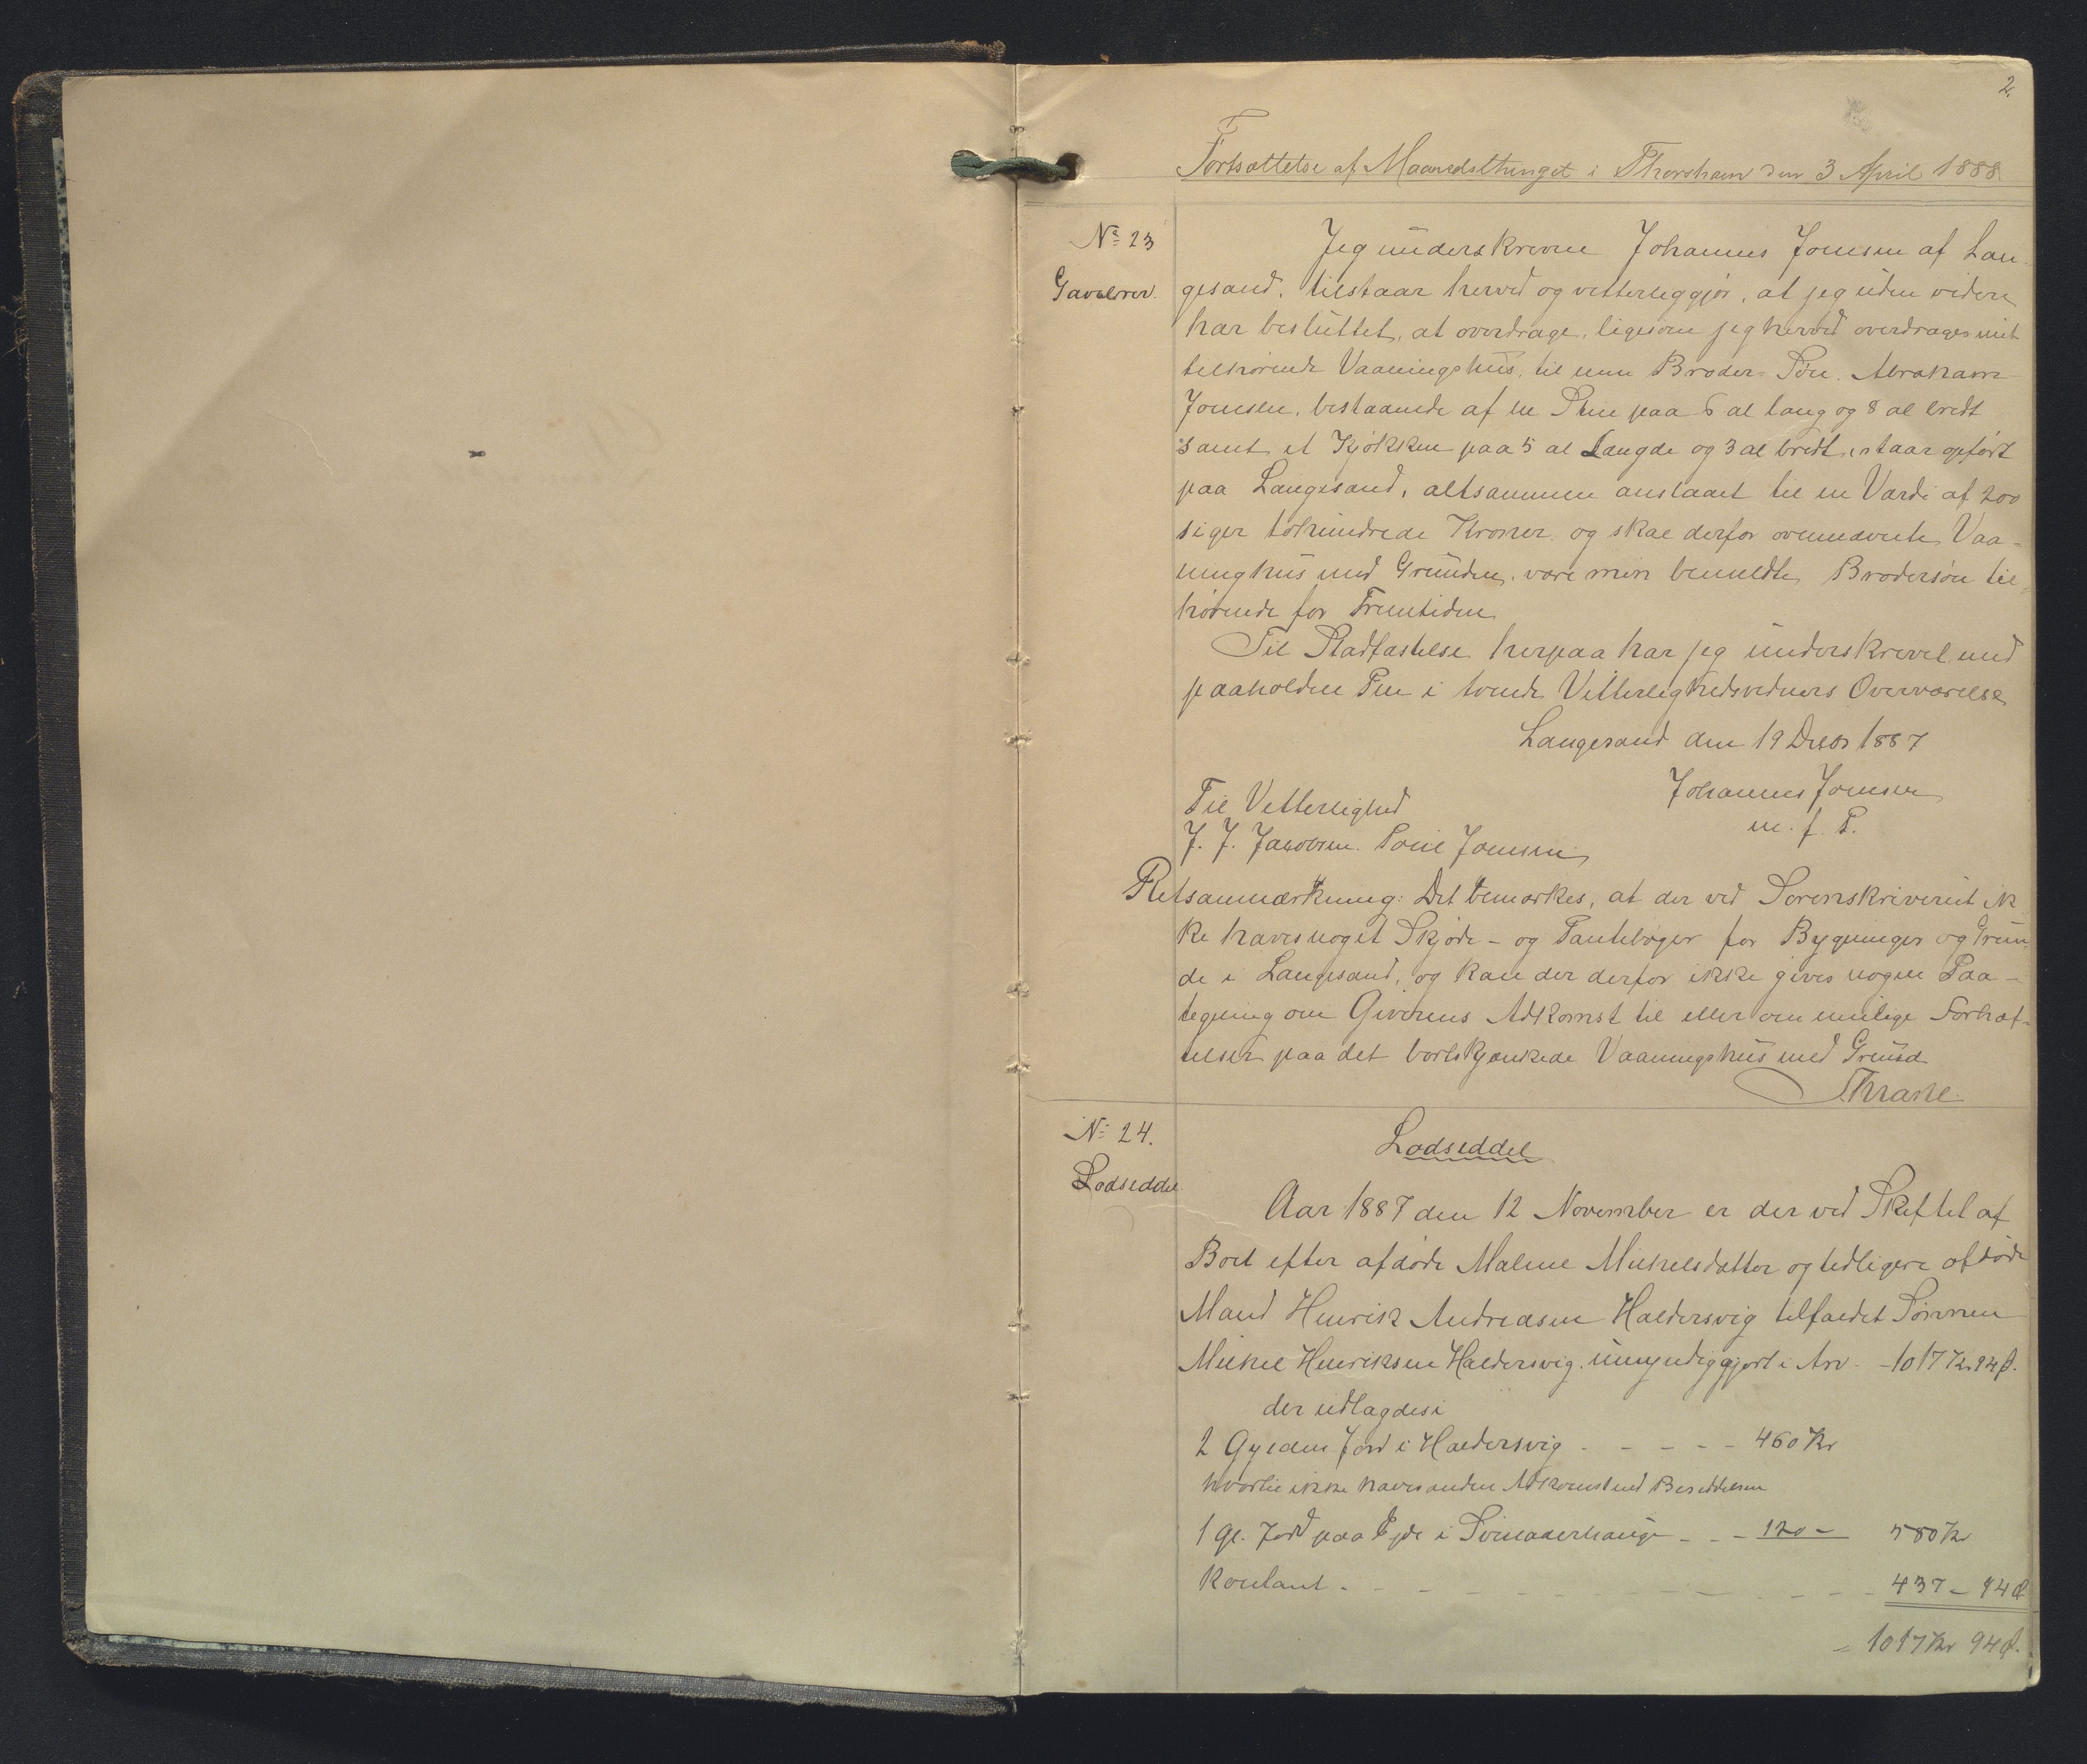 2.
Fortsættelse af Maanedsthinget i Thorshavn den 3 April 1888.
No 23
Gavebrev.
Jeg underskrevne Johannes Joensen af Lan-
gesand, tilstaar herved og vitterliggjør, at jeg uden videre
har besluttet, at overdrage, ligesom jeg herved overdrager mit
tilhørende Vaaningshus, til min Broder-Søn. Abraham
Joensen, bestaaende af en Stue paa 6 al lang og 8 al bredt
samt et Kjøkken paa 5 al Længde og 3 al bredt, staar opført
paa Langesand, altsammen anslaaet til en Værdi af 200
siger tohundrede Kroner og skal derfor ovennævnte Vaa-
ninghus med Grunden, være min bemeldte Brodersøn til-
hørende for Fremtiden.
Til Stadfæstelse herpaa har jeg underskrevet med
paaholden Pen i tvende Vitterlighedsvidners Overværelse
Langesand den 19 Decbr 1887
Johannes Joensen
m. f. P.
Til Vitterlighed
J. J. Jacobsen. Poul Joensen
Retsanmærkning: Det bemærkes, at der ved Sorenskriveriet ik-
ke haves noget Skjøde- og Pantebøger for Bygninger og Grun-
de i Langesand, og kan der derfor ikke gives nogen Paa-
tegning om Giverens Adkomst til eller om mulige Forhæf-
telser paa det bortskjænkede Vaaningshus med Grund
Thrane.
No 24.
Lodseddel.
Lodseddel
Aar 1887 den 12 November er der ved Skiftet af
Boet efter afdøde Malene Mikkelsdatter og tidligere afdøde
Mand Henrik Andreasen Haldersvig tilfaldet Sønnen
Mikkel Henriksen Haldersvig, umyndiggjort i Arv - 1017 Kr. 94 Ø.
der udlagdes i
2 Gylden Jord i Haldersvig - - - - - 460 Kr
hvortil ikke haves anden Adkomst end Besiddelsen
1 gl. Jord paa Ejde i - - - 120 - 580 Kr
Kontant - - - - - - - - - - - 437 - 94 Ø
= 1017 Kr 94 Ø.